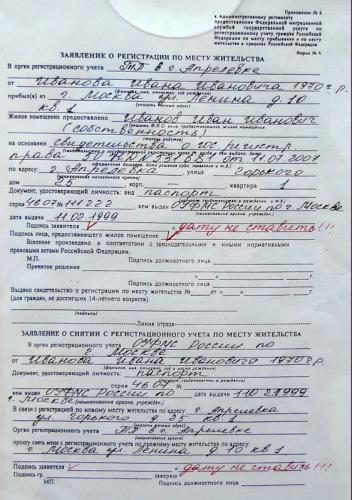 Приложение № 6
к Административному регламенту
предоставления Федеральной миграционной
службой государственной услуги по
регистрационному учету граждан Российской
Федерации по месту пребывания и по месту
жительства в пределах Российской Федерации
Форма № 6
ЗАЯВЛЕНИЕ О РЕГИСТРАЦИИ ПО МЕСТУ ЖИТЕЛЬСТВА
В орган регистрационного учета ТП в г. Апрелевке
от Иванова Ивана Ивановича 1970 г.р.
(фамилия, имя, отчество, год рождения)
прибыл(а) из г. Москва ул. Ленина д. 10
кв 1
(указать точный адрес)
Жилое помещение предоставлено Иванов Иван Иванович
(собственность)
на основании свидетельства о гос регистр
права от 11.09.2007
по адресу: г. Апрелевка улица Горького
дом 25 корп. квартира 1
Документ, удостоверяющий личность: вид паспорт
серия 4607 № 111222 кем выдан ОУФМС России по г. Москве
(наименование органа, учреждения)
дата выдачи 11.02.1999
Подпись заявителя v дату не ставить!!!
Подпись лица, предоставившего жилое помещение v
Вселение произведено в соответствии с законодательными и иными нормативными
правовыми актами Российской Федерации.
М.П. Подпись должностного лица
Принятое решение
Подпись должностного лица
Выдано свидетельство о регистрации по месту жительства № от
(для граждан, не достигших 14-летнего возраста).
(подпись)
Линия отреза
ЗАЯВЛЕНИЕ О СНЯТИИ С РЕГИСТРАЦИОННОГО УЧЕТА ПО МЕСТУ ЖИТЕЛЬСТВА
В орган регистрационного учета ОУФМС России по
г. Москве
от Иванова Ивана Ивановича 1970 г.р.
(фамилия, имя, отчество, год рождения)
Документ, удостоверяющий личность: паспорт
серия 4607 №
кем выдан ОУФМС России по дата выдачи 11.02.1999
г. Москве (наименование органа, учреждения)
В связи с регистрацией по новому месту жительства по адресу: г. Апрелевка
ул. Горького д. 25 кв. 1
(указать точный адрес)
Орган регистрационного учета ТП в г. Апрелевке
(наименование органа)
прошу снять меня с регистрационного учета по прежнему месту жительства по адресу:
г. Москва ул Ленина д 10 кв 1
Подпись заявителя v дату не ставить!!!
Подпись гр. заверяю
М.П. Подпись должностного лица